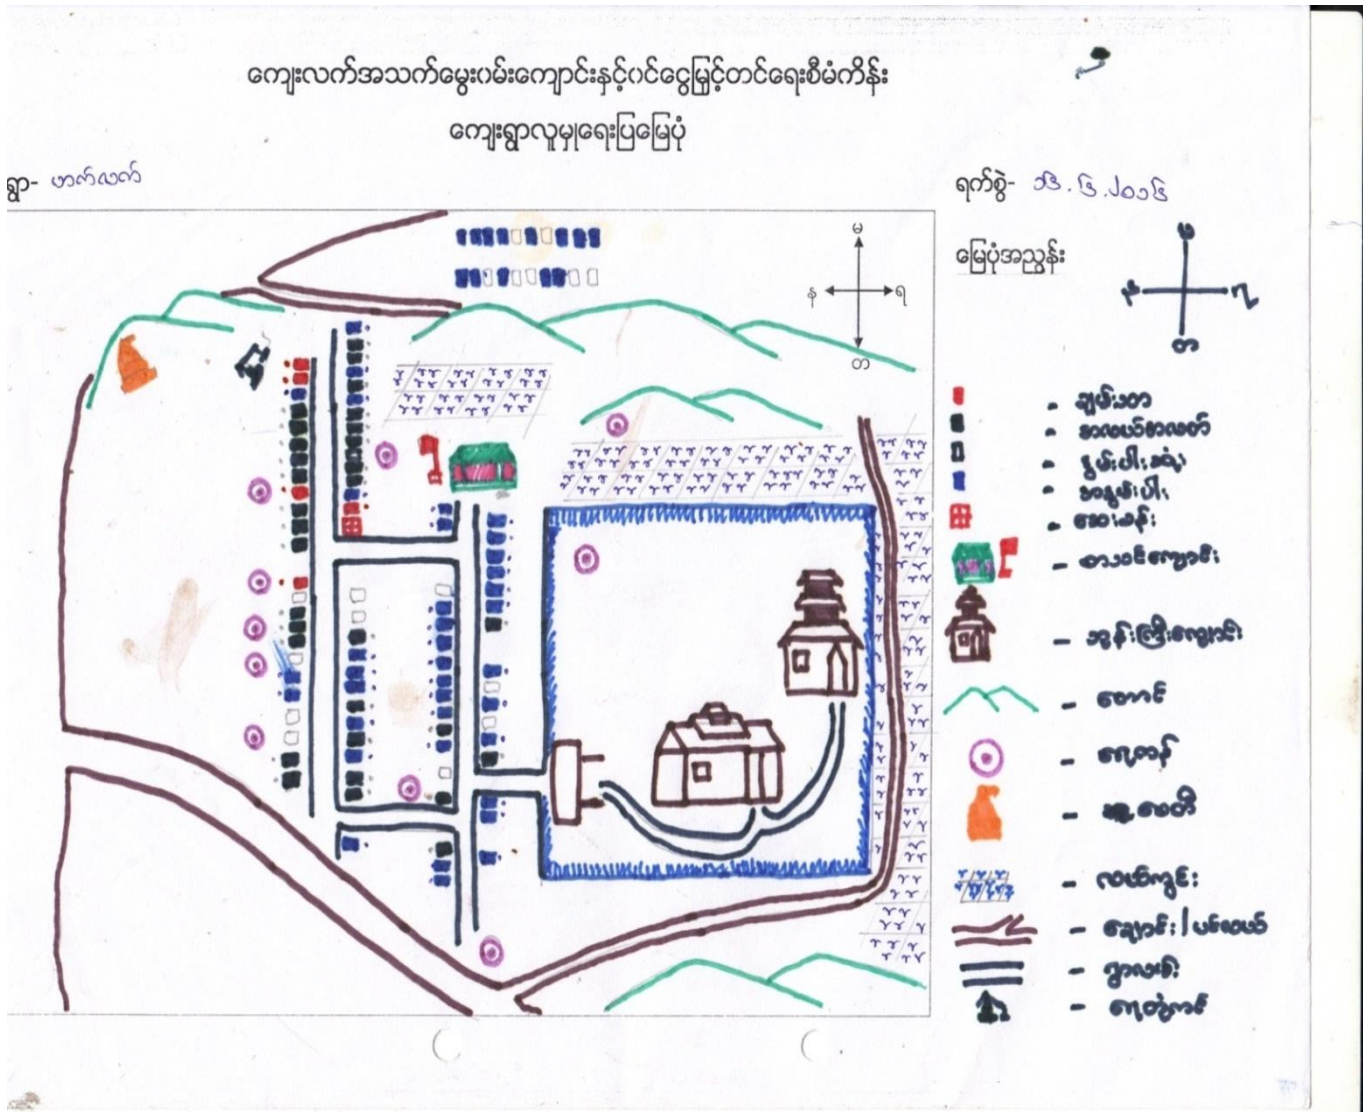 ကျေးလက်အသက်မွေးဝမ်းကျောင်းနှင့်ဝင်ငွေမြှင့်တင်ရေးစီမံကိန်း
ကျေးရွာလူမှုရေးပြမြေပုံ
ရွာ- ဟက်လက်
ရက်စွဲ- ၁၆.၆.၂၀၁၆
မြေပုံအညွှန်း
မ
န
ရ
တ
မ
န
ရ
တ
- ချမ်းသာ
- အလယ်အလတ်
- နွမ်းပါး
- ဆေးခန်း
- စာသင်ကျောင်း
- ဘုန်းကြီးကျောင်း
- တောင်
- ရေကန်
- စေတီ
- လယ်ကွင်း
- ချောင်း/ပင်လယ်
- ရွာလမ်း
- ရေတွင်း